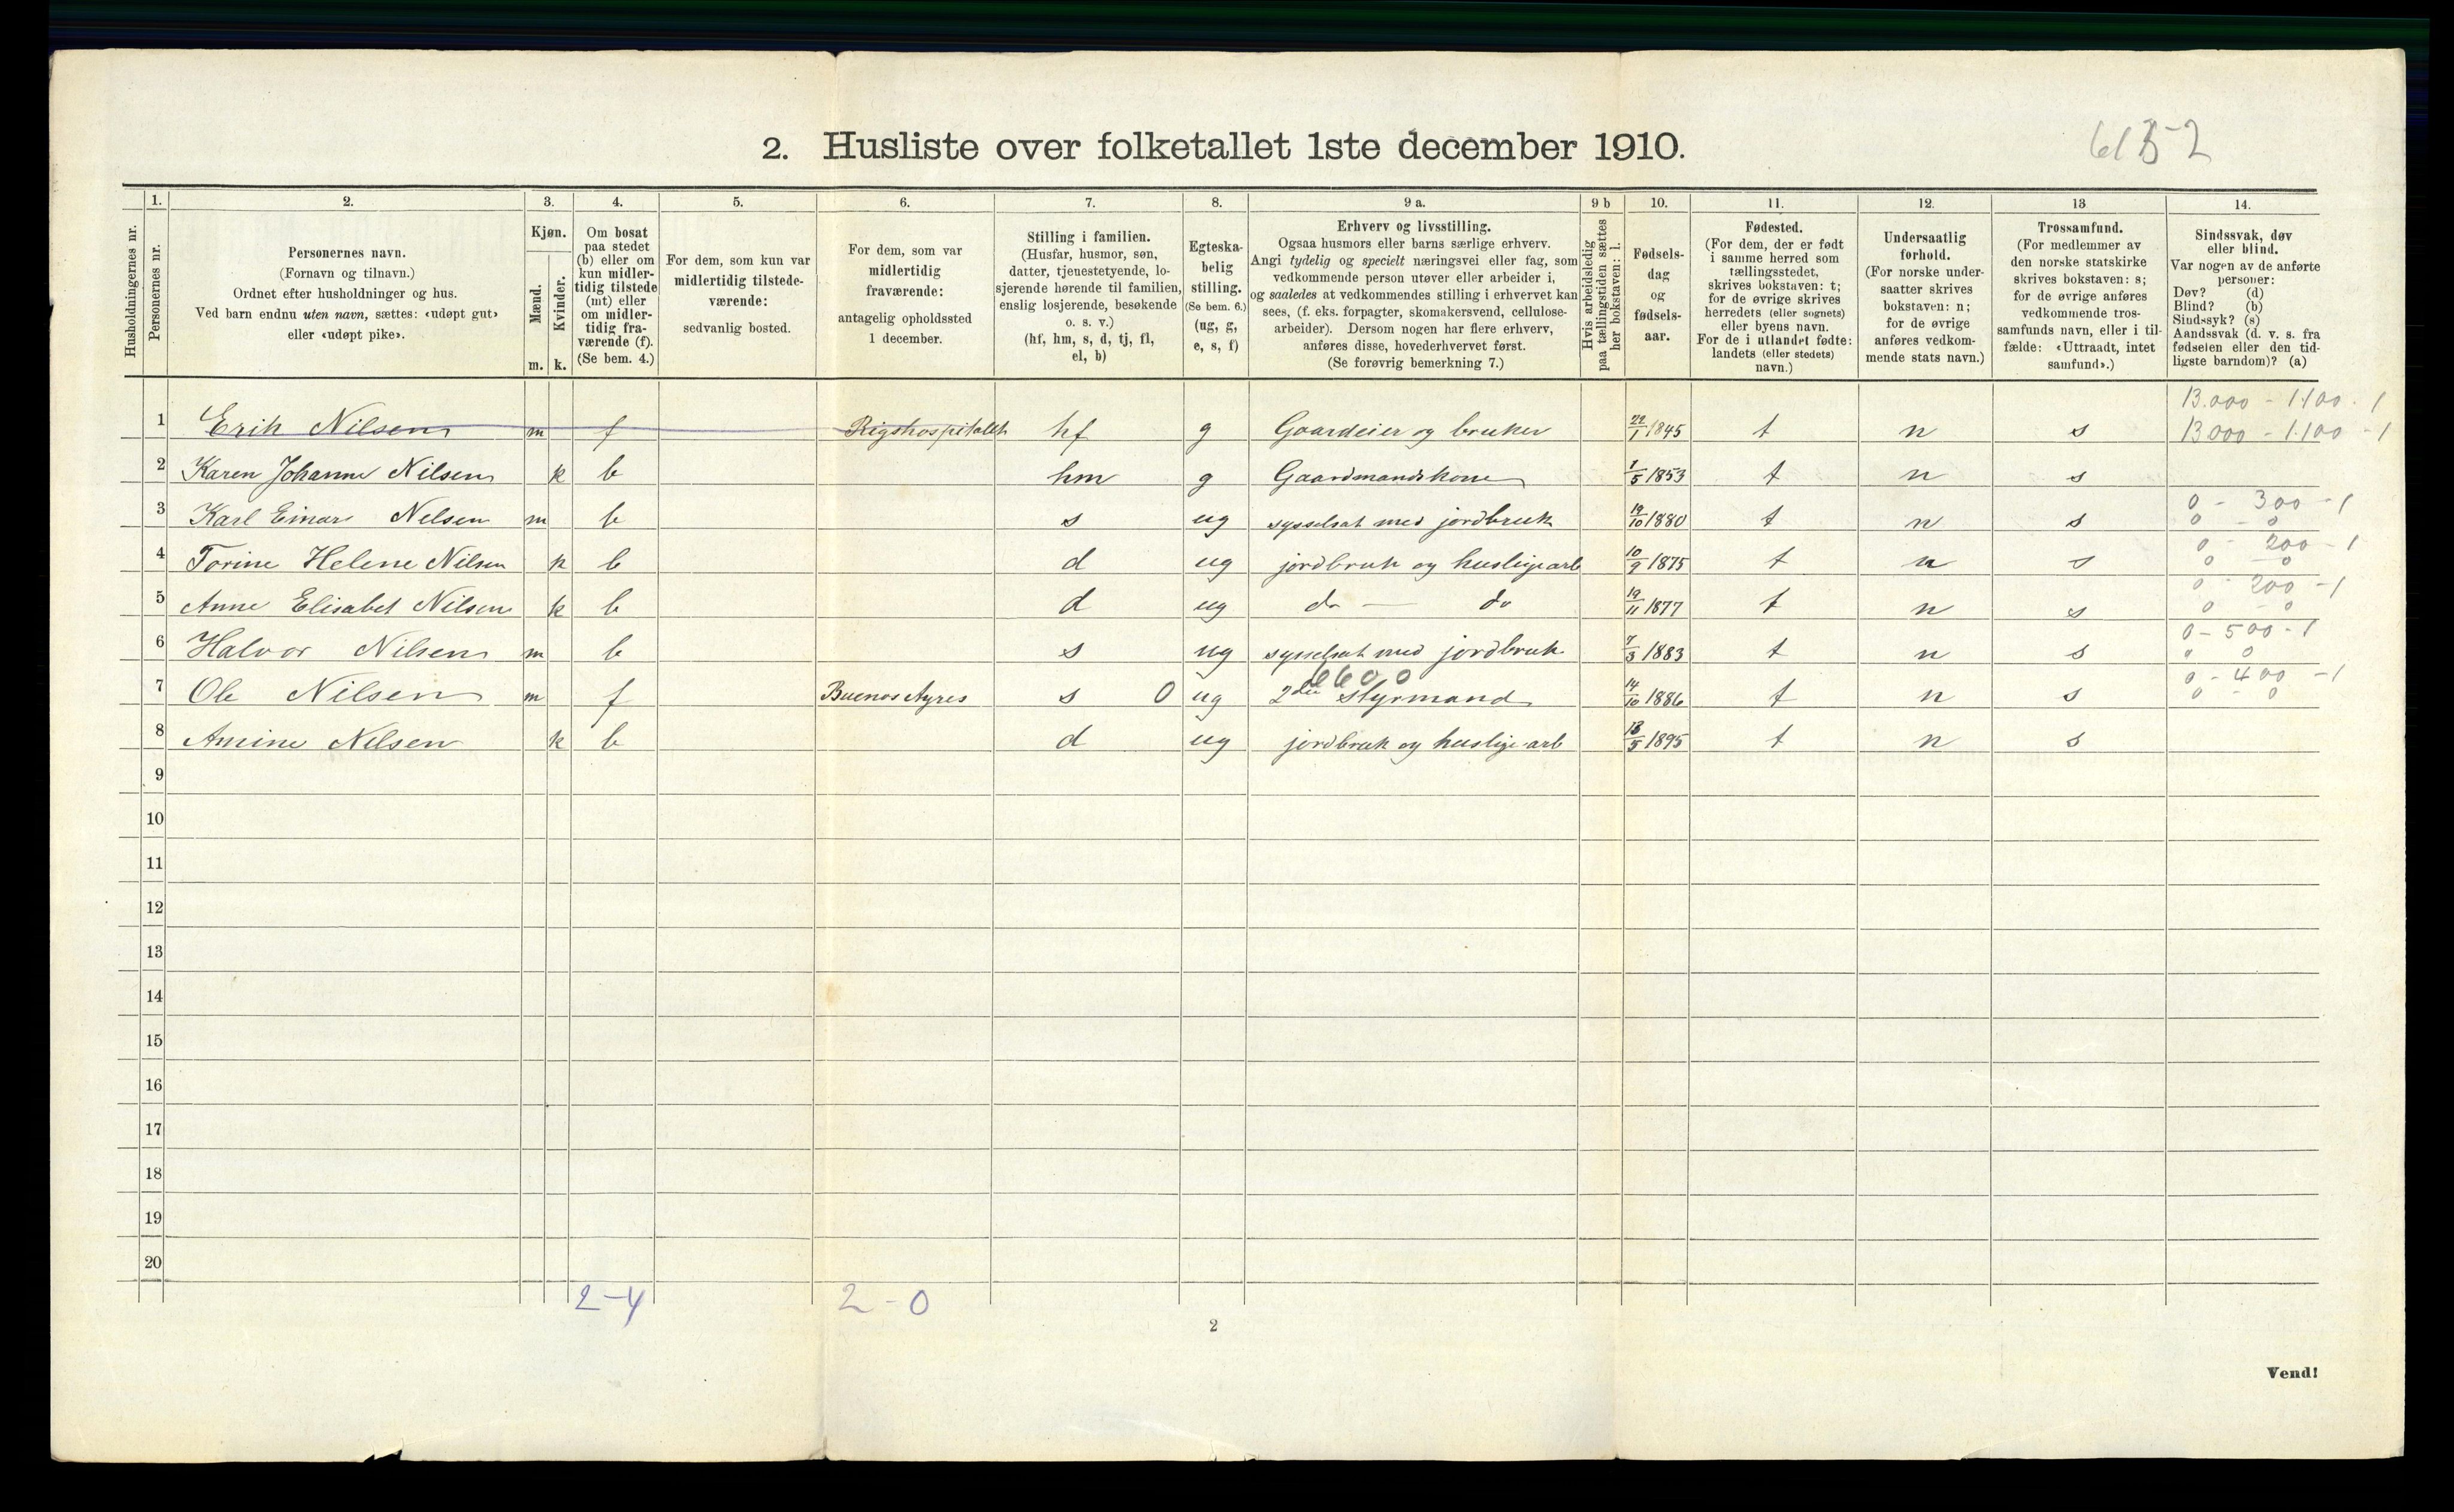 2. Husliste over folketallet 1ste december 1910.
Husholdningernes nr.
1.
Personernes nr.
2.
Personernes navn.
(Fornavn og tilnavn.)
Ordnet efter husholdninger og hus.
Ved barn endnu uten navn, sættes: «udøpt gut»
eller «udøpt pike».
3.
Kjøn.
Mænd.
Kvinder.
m. k.
4.
Om bosat
paa stedet
(b) eller om
kun midler-
tidig tilstede
(mt) eller
om midler-
tidig fra-
værende (f).
(Se bem. 4.)
5.
For dem, som kun var
midlertidig tilstede-
værende:
sedvanlig bosted.
6.
For dem, som var
midlertidig
fraværende:
antagelig opholdssted
1 december.
7.
Stilling i familien.
(Husfar, husmor, søn,
datter, tjenestetyende, lo-
sjerende hørende til familien,
enslig losjerende, besøkende
o. s. v.)
(hf, hm, s, d, tj, fl,
el, b)
8.
Egteska-
belig
stilling.
(Se bem. 6.)
(ug, g,
e, s, f)
9 a.
Erhverv og livsstilling.
Ogsaa husmors eller barns særlige erhverv.
Angi tydelig og specielt næringsvei eller fag, som
vedkommende person utøver eller arbeider i,
og saaledes at vedkommendes stilling i erhvervet kan
sees, (f. eks. forpagter, skomakersvend, cellulose-
arbeider). Dersom nogen har flere erhverv,
anføres disse, hovederhvervet først.
(Se forøvrig bemerkning 7.)
9 b
Hvis arbeidsledig
paa tællingstiden sættes
her bokstaven: l.
10.
Fødsels-
dag
og
fødsels-
aar.
11.
Fødested.
(For dem, der er født
i samme herred som
tællingsstedet,
skrives bokstaven: t;
for de øvrige skrives
herredets (eller sognets)
eller byens navn.
For de i utlandet fødte:
landets (eller stedets)
navn.)
12.
Undersaatlig
forhold.
(For norske under-
saatter skrives
bokstaven: n;
for de øvrige
anføres vedkom-
mende stats navn.)
13
Trossamfund.
(For medlemmer av
den norske statskirke
skrives bokstaven: s;
for de øvrige anføres
vedkommende tros-
samfunds navn, eller i til-
fælde: «Uttraadt, intet
samfund».)
14.
Sindssvak, døv
eller blind.
Var nogen av de anførte
personer:
Døv? (d)
Blind? (b)
Sindssyk? (s)
Aandssvak (d. v. s. fra
fødselen eller den tid-
ligste barndom)? (a)
13.000 - 1.100 - 1
1 Erik Nilsen m f Rigshospitalet hf g Gaardeier og bruker 22/1 1845 t n s 13000 - 1.100 - 1
2 Karen Johanne Nilsen k b hm g Gaardmandskone 1/5 1853 t n s
0 - 300 - 1
3 Karl Einar Nilsen m b s ug sysselsat med jordbruk 19/10 1880 t n s 0 - 0
0 - 200 - 1
4 Torine Helene Nilsen k b d ug jordbruk og huslige arb 10/9 1875 t n s 0 - 0
0 - 200 - 1
5 Anne Elisabet Nilsen k b d ug do — do 19/11 1877 t n s 0 - 0
0 - 500 - 1
6 Halvor Nilsen m b s ug sysselsat med jordbruk 7/3 1883 t n s 0 0
6600
0 - 400 - 1
7 Ole Nilsen m f Buenos Ayres s 0 ug 2den Styrmand 14/10 1886 t n s 0 - 0
8 Amine Nilsen k b d ug jordbruk og huslige arb 13/5 1895 t n s
9
10
11
12
13
14
15
16
17
18
19
20
2-4 2-0
2
Vend!